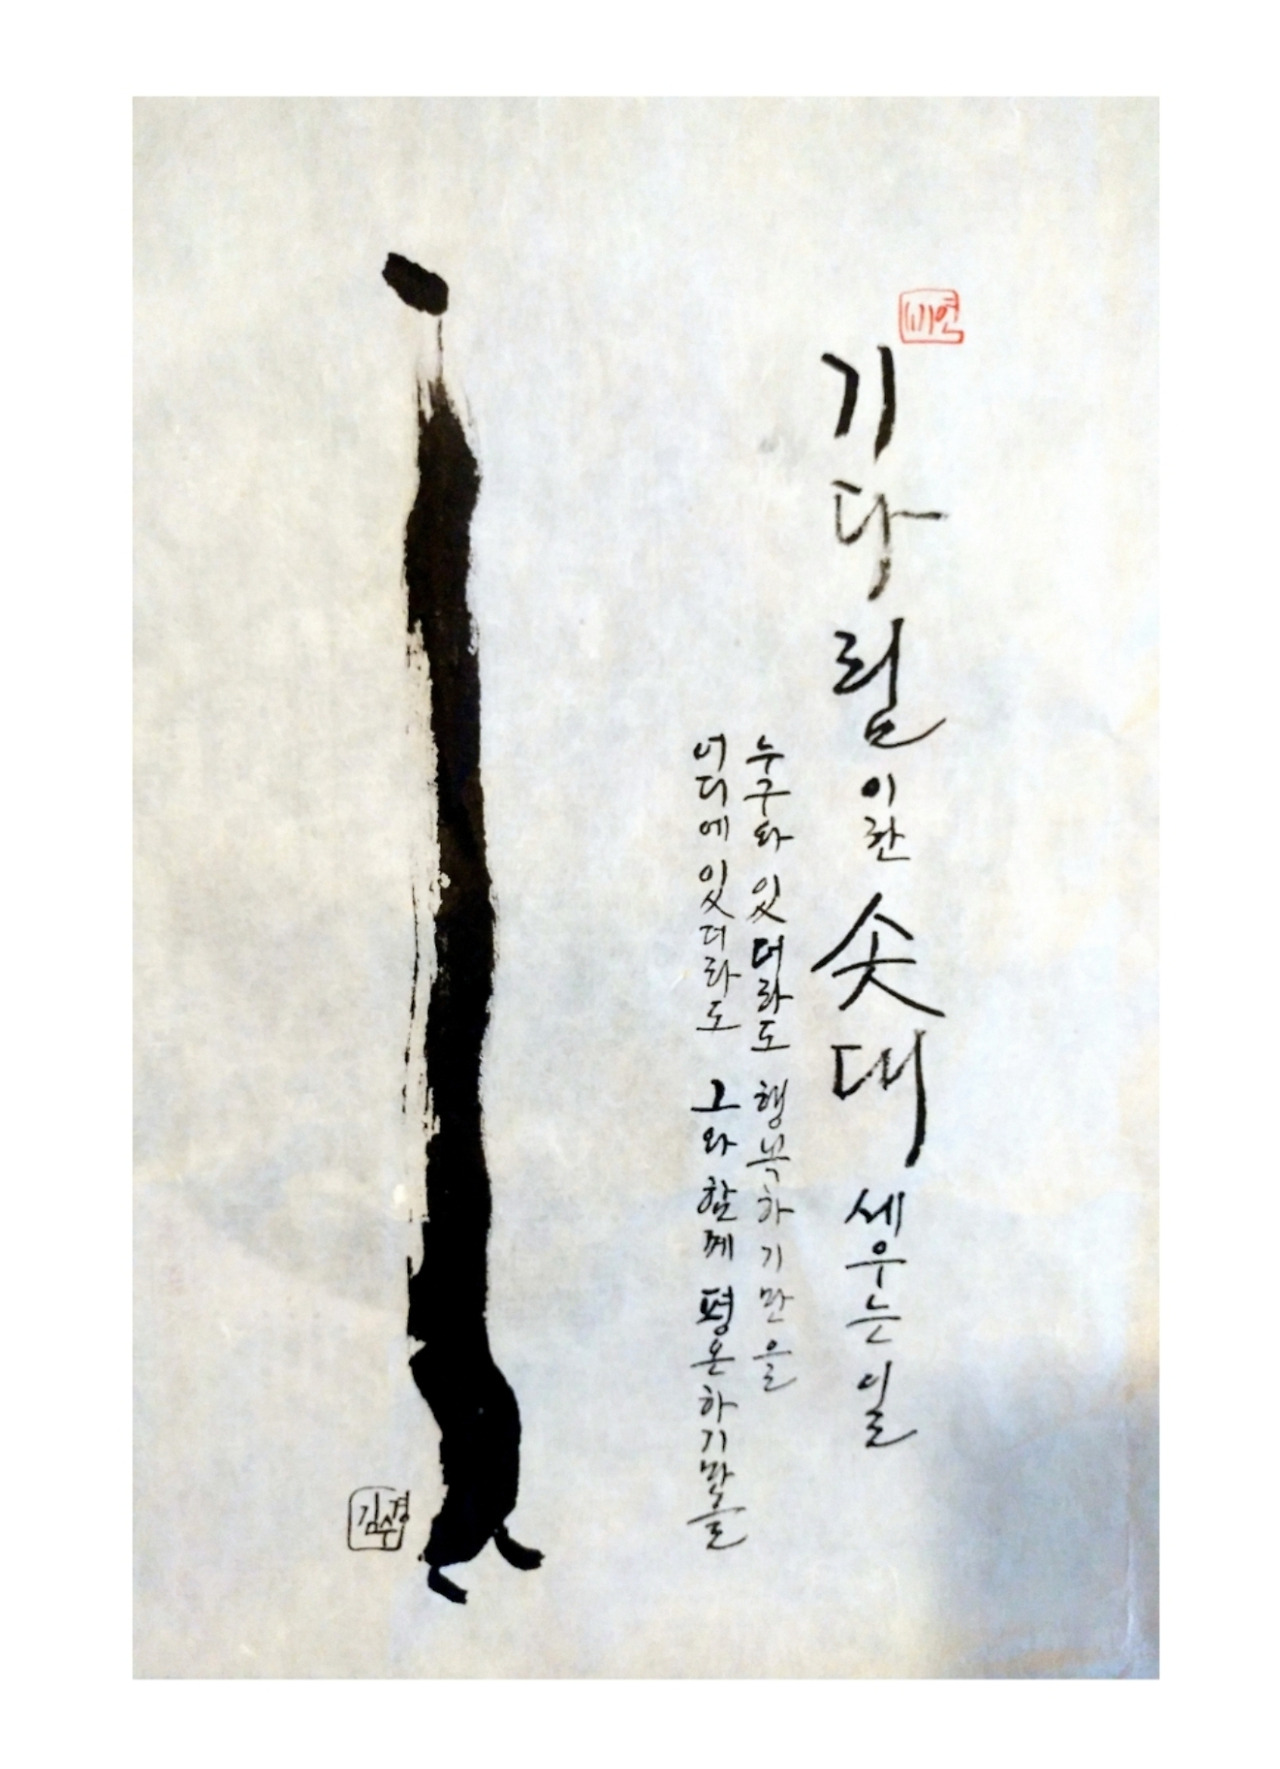 기다림이란 솟대 세우는 일
누구와 있더라도 행복하기만을
어디에 있더라도 그와 함께 평온하기만을
김수경